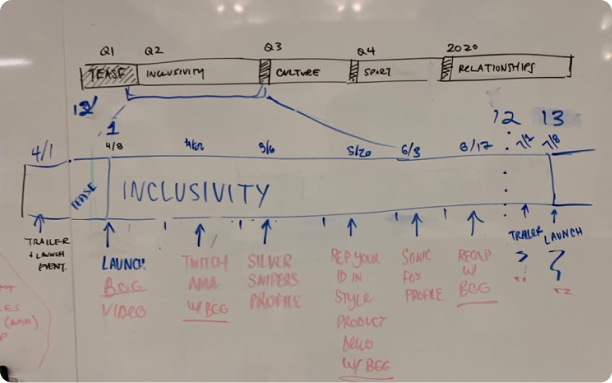 Q1 Q2 Q3 Q4 2020
TEASE INCLUSIVITY CULTURE SPORT RELATIONSHIPS
12 13
1
4/1 4/8 5/6 5/20 6/3 6/17 7/8
TEASE
INCLUSIVITY
TRAILER
+ LAUNCH
EVENT.
LAUNCH
BGG
VIDEO
TWITCH
AMA
W/ BGG
SILVER
SNIPERS
PROFILE
REP YOUR
ID IN
STYLE
PRODUCT
DEMO
W/ BGG
SONIC
FOX
PROFILE
RECAP
W/
BGG
TRAILER
LAUNCH